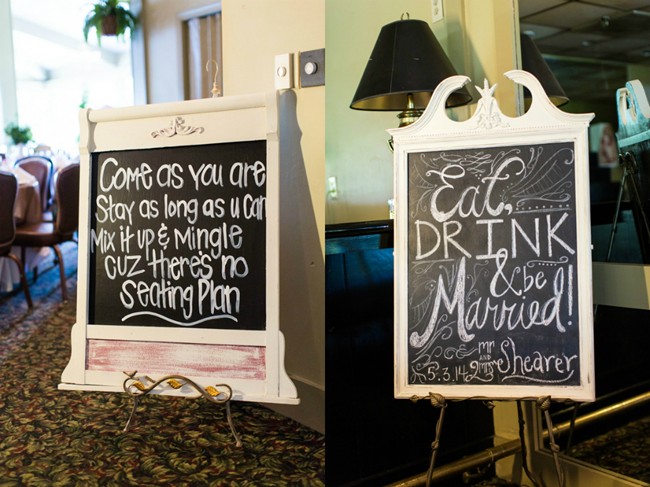 Come as you are
Stay as long as u can
Mix it up & Mingle
cuz there's no
Seating Plan
Eat,
DRINK
& be
Married!
mr
and
mrs Shearer
5.3.14